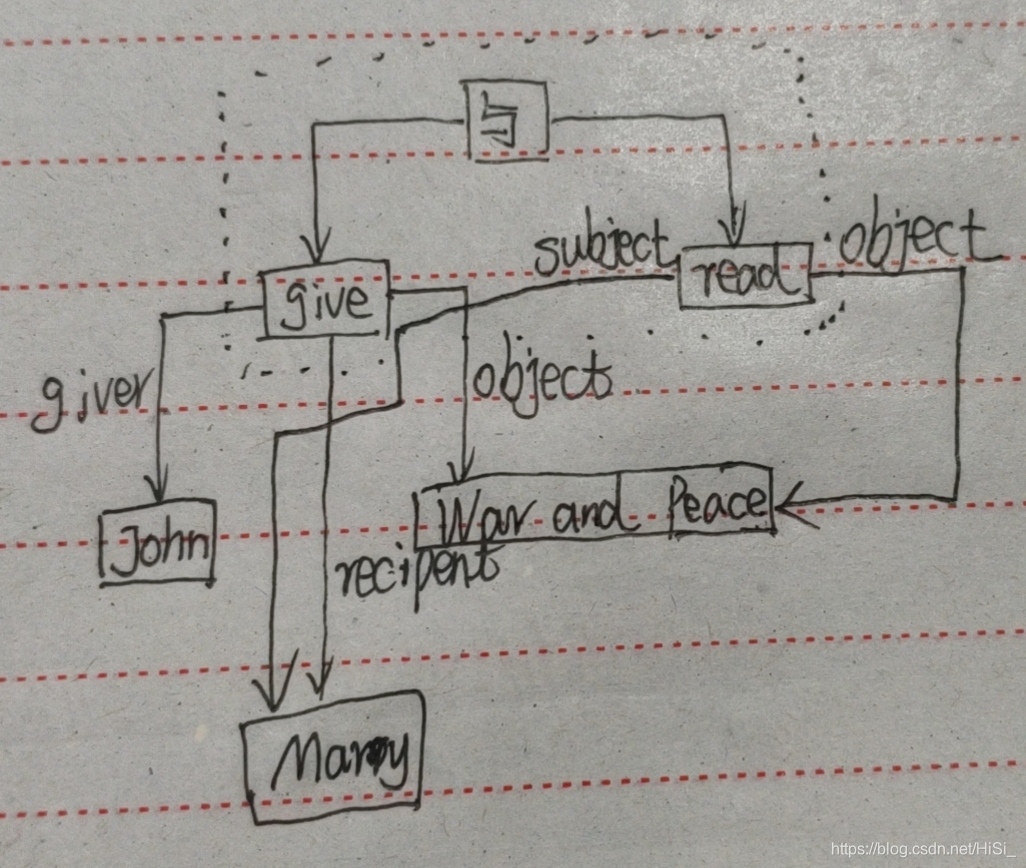 与
subject
object
read
give
giver
objects
War and Peace
John
recipent
Marry
https://blog.csdn.net/HiSi_